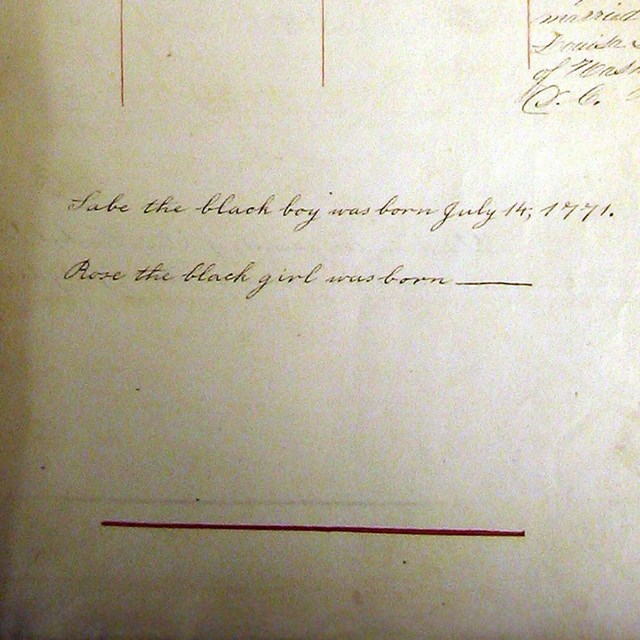 married
Louisa
of Wash
D. C.
Sabe the black boy was born July 14, 1771.
Rose the black girl was born ———